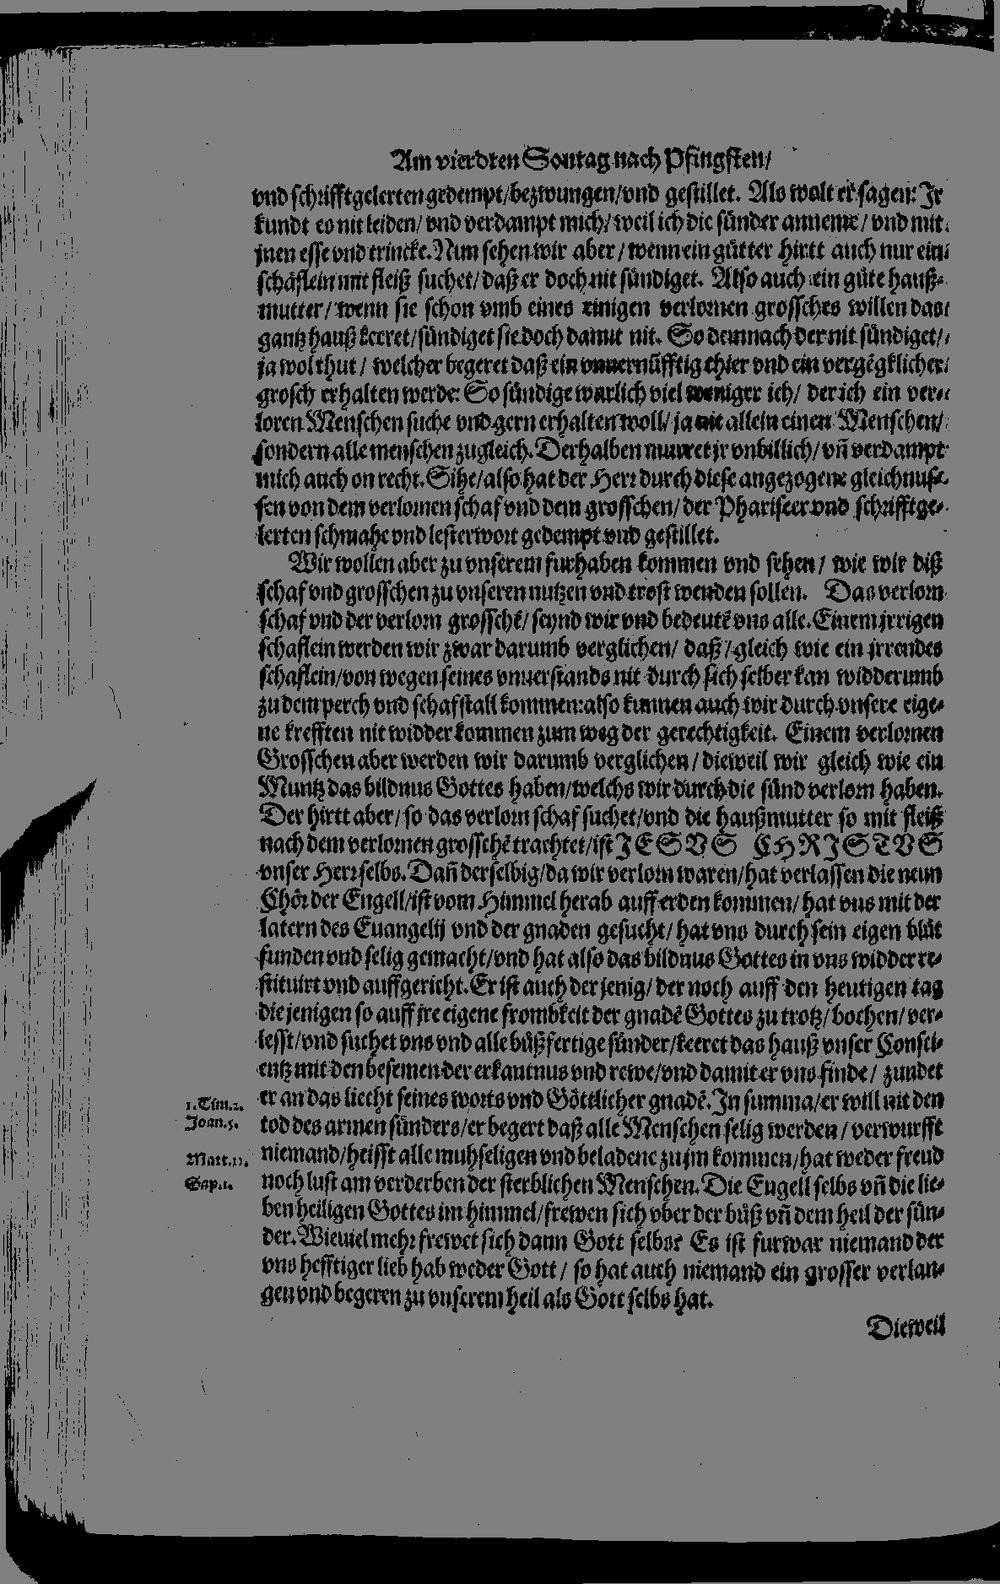 Am vierdten Sontag nach Pfingsten/
vnd schrifftgelerten gedempt/bezwungen/vnd gestillet. Als wolt er sagen: Jr
kundt es nit leiden/ vnd verdampt mich/ weil ich die sünder anneme/ vnd mit
jnen esse vnd trincke. Nun sehen wir aber/ wenn ein gütter hirtt auch nur ein
schäflein mit fleiß suchet/ daß er doch nit sündiget. Also auch ein güte hauß-
mutter/ wenn sie schon vmb eines einigen verlornen grossches willen das
gantz hauß keeret/sündiget sie doch damit nit. So demnach der nit sündiget/
ja wol thut/ welcher begeret daß ein vnuernüfftig thier vnd ein vergēgklicher
grosch erhalten werde: So sündige warlich viel weniger ich/ der ich ein ver-
loren Menschen suche vnd gern erhalten woll/ ja nit allein einen Menschen/
sondern alle menschen zugleich. Derhalben murret jr vnbillich/ vñ verdampt
mich auch on recht. Sihe/also hat der Herr durch diese angezogene gleichnus-
sen von dem verlornen schaf vnd dem grosschen/ der Phariseer vnd schrifftge-
lerten schmahe vnd lesterwort gedempt vnd gestillet.
Wir wollen aber zu vnserem furhaben kommen vnd sehen/ wie wir diß
schaf vnd grosschen zu vnseren nutzen vnd trost wenden sollen. Das verlorn
schaf vnd der verlorn grosschē/ seynd wir vnd bedeutē vns alle. Einem jrrigen
schaflein werden wir zwar darumb verglichen/ daß/gleich wie ein jrrendes
schaflein/von wegen seines vnuerstands nit durch sich selber kan widderumb
zu dem perch vnd schafstall kommen:also kunnen auch wir durch vnsere eige-
ne krefften nit widder kommen zum weg der gerechtigkeit. Einem verlornen
Grosschen aber werden wir darumb verglichen/ dieweil wir gleich wie ein
Muntz das bildnus Gottes haben/welchs wir durch die sünd verlorn haben.
Der hirtt aber/ so das verlorn schaf suchet/vnd die haußmutter so mit fleiß
nach dem verlornen grosschē trachtet/ist JESVS CHRISTVS
vnser Herr selbs. Dañ derselbig/da wir verlorn waren/hat verlassen die neun
Chör der Engell/ist vom Himmel herab auff erden kommen/ hat vns mit der
latern des Euangelij vnd der gnaden gesucht/ hat vns durch sein eigen blüt
funden vnd selig gemacht/vnd hat also das bildnus Gottes in vns widder re-
stituirt vnd auffgericht. Er ist auch der jenig/ der noch auff den heutigen tag
die jenigen so auff jre eigene frombkeit der gnadē Gottes zu trotz/ bochen/ ver-
lesst/vnd suchet vns vnd alle büßfertige sünder/keeret das hauß vnser Consci-
entz mit den besemen der erkantnus vnd rewe/vnd damit er vns finde/ zundet
er an das liecht seines worts vnd Göttlicher gnadē. In summa/er will nit den
1. Tim. 2.
tod des armen sünders/er begert daß alle Menschen selig werden/ verwurfft
Joan. 5.
niemand/heisst alle muhseligen vnd beladene zu jm kommen/hat weder freud
Matt. 11.
noch lust am verderben der sterblichen Menschen. Die Engell selbs vñ die lie-
Sap. 1.
ben heiligen Gottes im himmel/frewen sich vber der büß vñ dem heil der sün-
der. Wieuiel mehr frewet sich dann Gott selbs? Es ist furwar niemand der
vns hefftiger lieb hab weder Gott/ so hat auch niemand ein grosser verlan-
gen vnd begeren zu vnserem heil als Gott selbs hat.
Dieweil